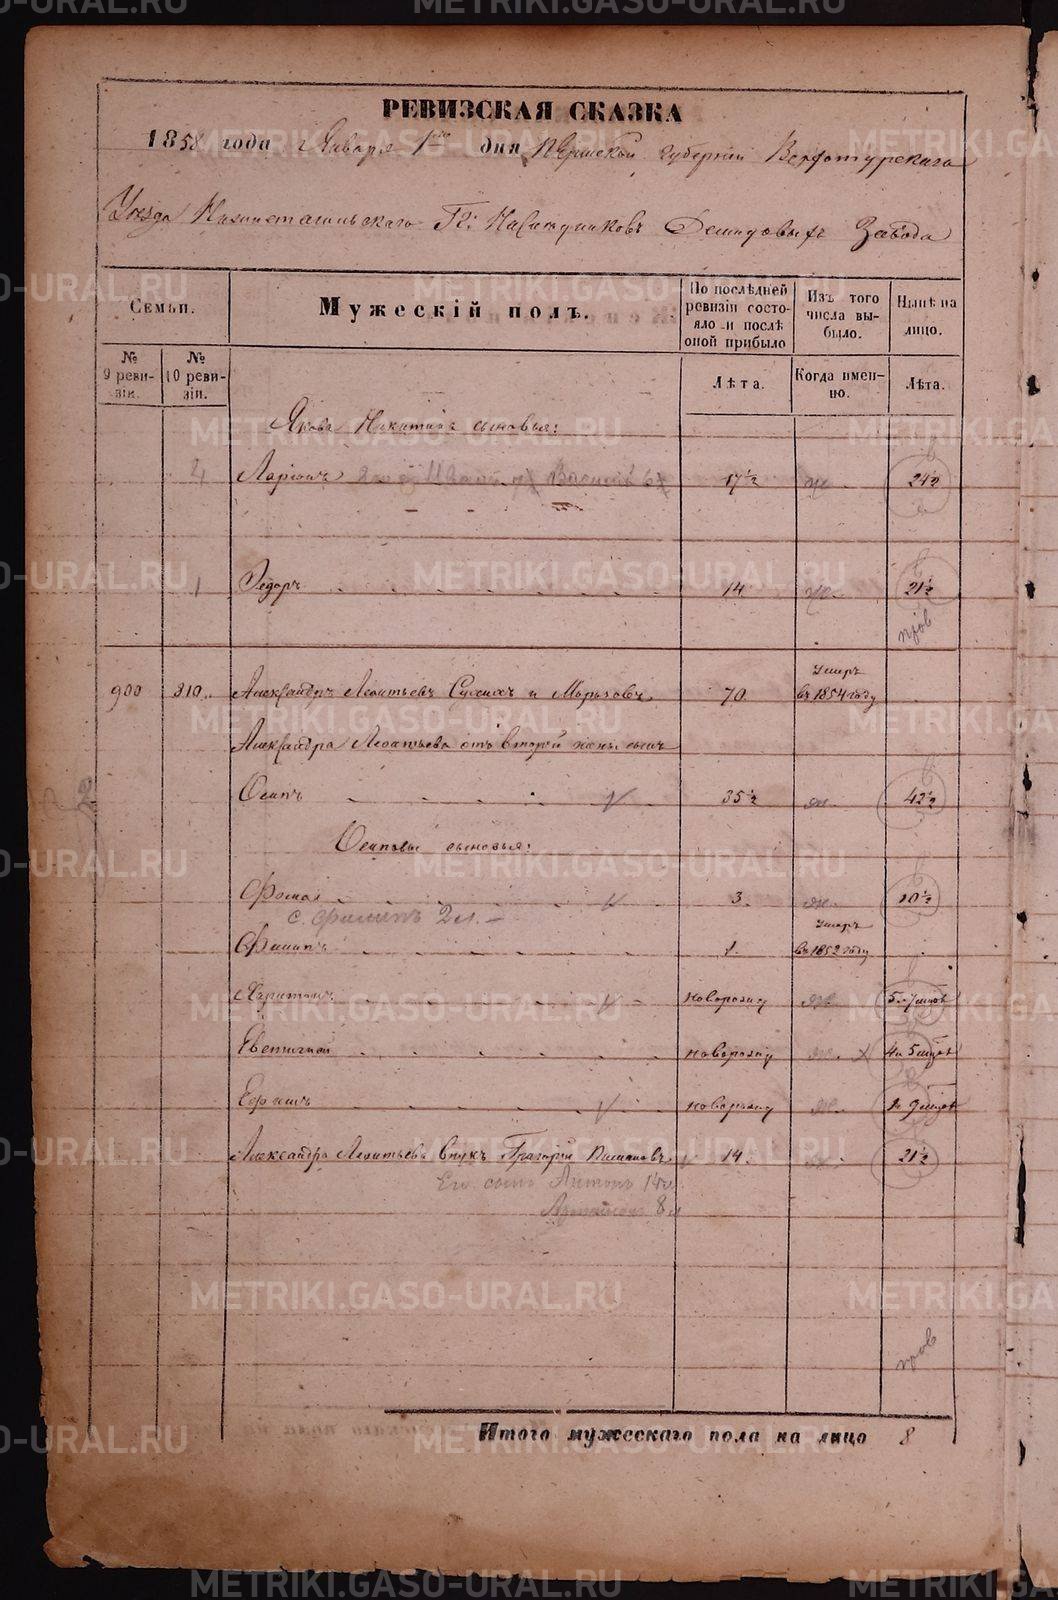 РЕВИЗСКАЯ СКАЗКА
1858 года Января 1го дня Пермской губернии Верхотурскаго
Уезда Нижнетагильскаго Гг: Наследниковъ Демидовыхъ Завода
Семьи.
Мужескій полъ.
По послѣдней ревизіи состояло и послѣ оной прибыло
Изъ того числа выбыло.
Нынѣ на лицо.
№ 9 ревизіи.
№ 10 ревизіи.
Лѣта.
Когда именно.
Лѣта.
Якова Никитина сыновья:
Ларионъ Иванъ Василий 17½ 24½
1 Федоръ 14 21½
пров
900 810 Александръ Леонтьевъ Сухихъ и Морзовъ 70 умеръ в 1854 году
Александра Леонтьева отъ второй жены сынъ
Осипъ 35½ 42½
Осиповы сыновья:
Фома 3 10½
с. Филипъ 2 л.
Филипъ 1 умеръ въ 1852 году
Харитонъ новорожну 5 и 7 мцовъ
Евтихий новорожну 4 и 5 мцовъ
Ефимъ новорожну 9 мцовъ
Александра Леонтьева внукъ Григорий 14 21½
Его сынъ Антонъ 14
8 л
пров
Итого мужескаго пола на лицо 8
METRIKI.GASO-URAL.RU